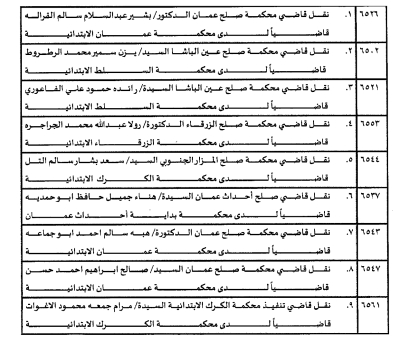 ٦٥٢٦ ١. نقل قاضي محكمة صلح عمان الدكتور/ بشير عبدالسلام سالم القرالة
قاضياً لدى محكمة عمان الابتدائية
٦٥٠٢ ٢. نقل قاضي محكمة صلح عين الباشا السيد/ يزن سمير محمد الرطروط
قاضياً لدى محكمة السلط الابتدائية
٦٥٢١ ٣. نقل قاضي محكمة صلح عين الباشا السيدة/ رائده حمود علي الفاعوري
قاضياً لدى محكمة السلط الابتدائية
٦٥٥٣ ٤. نقل قاضي محكمة صلح الزرقاء الدكتورة/ رولا عبدالله محمد الجراجره
قاضياً لدى محكمة الزرقاء الابتدائية
٦٥٤٤ ٥. نقل قاضي محكمة صلح المزار الجنوبي السيد/ سعد بشار سالم التل
قاضياً لدى محكمة الكرك الابتدائية
٦٥٣٧ ٦. نقل قاضي صلح أحداث عمان السيدة/ هناء جميل حافظ ابو حمديه
قاضياً لدى محكمة بداية أحداث عمان
٦٥٤٣ ٧. نقل قاضي محكمة صلح عمان الدكتورة/ هبه سالم احمد ابو جماعه
قاضياً لدى محكمة عمان الابتدائية
٦٥٤٧ ٨. نقل قاضي محكمة صلح عمان السيد/ صالح ابراهيم احمد حسن
قاضياً لدى محكمة عمان الابتدائية
٦٥٦١ ٩. نقل قاضي تنفيذ محكمة الكرك الابتدائية السيدة/ مرام جمعه محمود الاغوات
قاضياً لدى محكمة الكرك الابتدائية